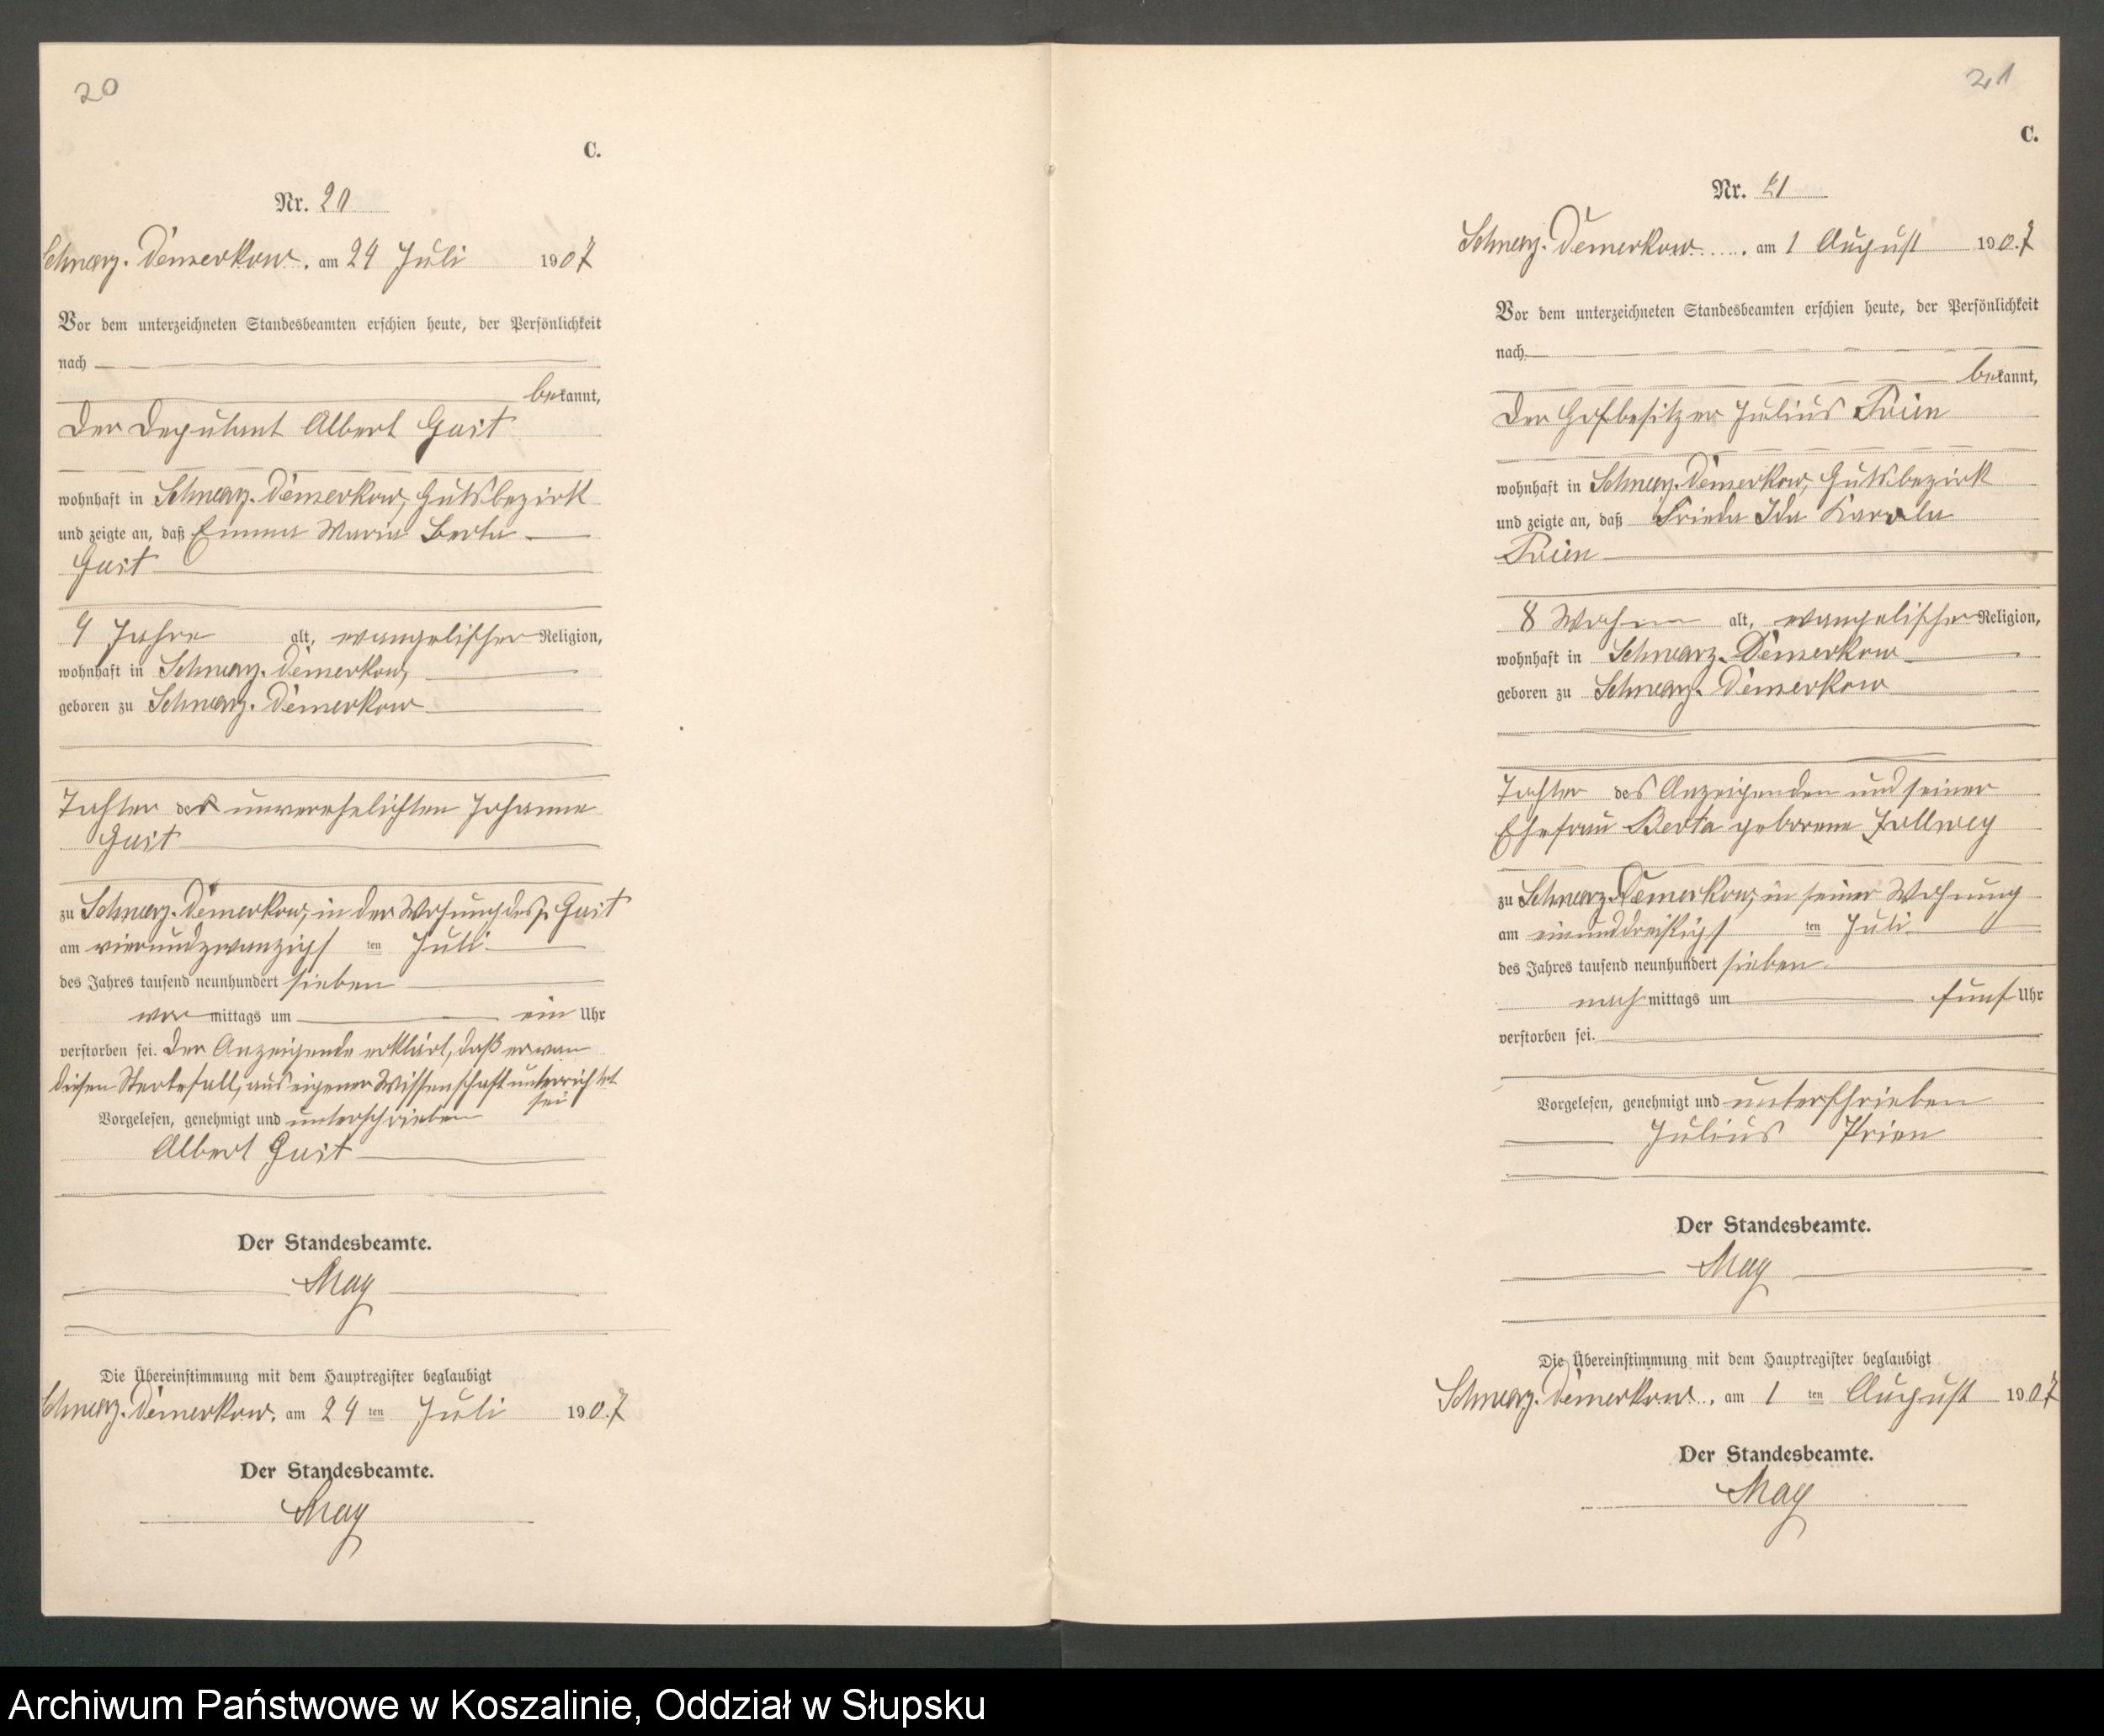 20
C.
Nr. 20
Schwarz-Damerkow, am 24 Juli 1907
Vor dem unterzeichneten Standesbeamten erschien heute, der Persönlichkeit
nach
bekannt,
der Deputant Albert Gust
wohnhaft in Schwarz-Damerkow, Gutsbezirk
und zeigte an, daß Emma Maria Berta
Gust
Jahre alt, evangelischer Religion,
wohnhaft in Schwarz-Damerkow,
geboren zu Schwarz-Damerkow
Tochter der unverehelichten Johanne
Gust
zu Schwarz-Damerkow, in der Wohnung des p. Gust
am vierundzwanzigsten Juli
des Jahres tausend neunhundert sieben
vormittags um ein Uhr
verstorben sei. Der Anzeigende erklärt, daß er von
diesen Sterbefall, aus eigener Wissenschaft unterrichtet
sei
Vorgelesen, genehmigt und unterschrieben
Albert Gust
Der Standesbeamte.
May
Die Übereinstimmung mit dem Hauptregister beglaubigt
Schwarz-Damerkow, am 24 ten Juli 1907
Der Standesbeamte.
May
21
C.
Nr. 21
Schwarz-Damerkow, am 1 August 1907
Vor dem unterzeichneten Standesbeamten erschien heute, der Persönlichkeit
nach
bekannt,
der Hofbesitzer Julius Prien
wohnhaft in Schwarz-Damerkow, Gutsbezirk
und zeigte an, daß Frieda Ida Karola
Prien
8 Wochen alt, evangelischer Religion,
wohnhaft in Schwarz-Damerkow
geboren zu Schwarz-Damerkow
Tochter des Anzeigenden und seiner
Ehefrau Berta geborene Jollweg
zu Schwarz-Damerkow, in seiner Wohnung
am einunddreißigsten Juli
des Jahres tausend neunhundert sieben
nachmittags um fünf Uhr
verstorben sei.
Vorgelesen, genehmigt und unterschrieben
Julius Prien
Der Standesbeamte.
May
Die Übereinstimmung mit dem Hauptregister beglaubigt
Schwarz-Damerkow, am 1 ten August 1907
Der Standesbeamte.
May
Archiwum Państwowe w Koszalinie, Oddział w Słupsku